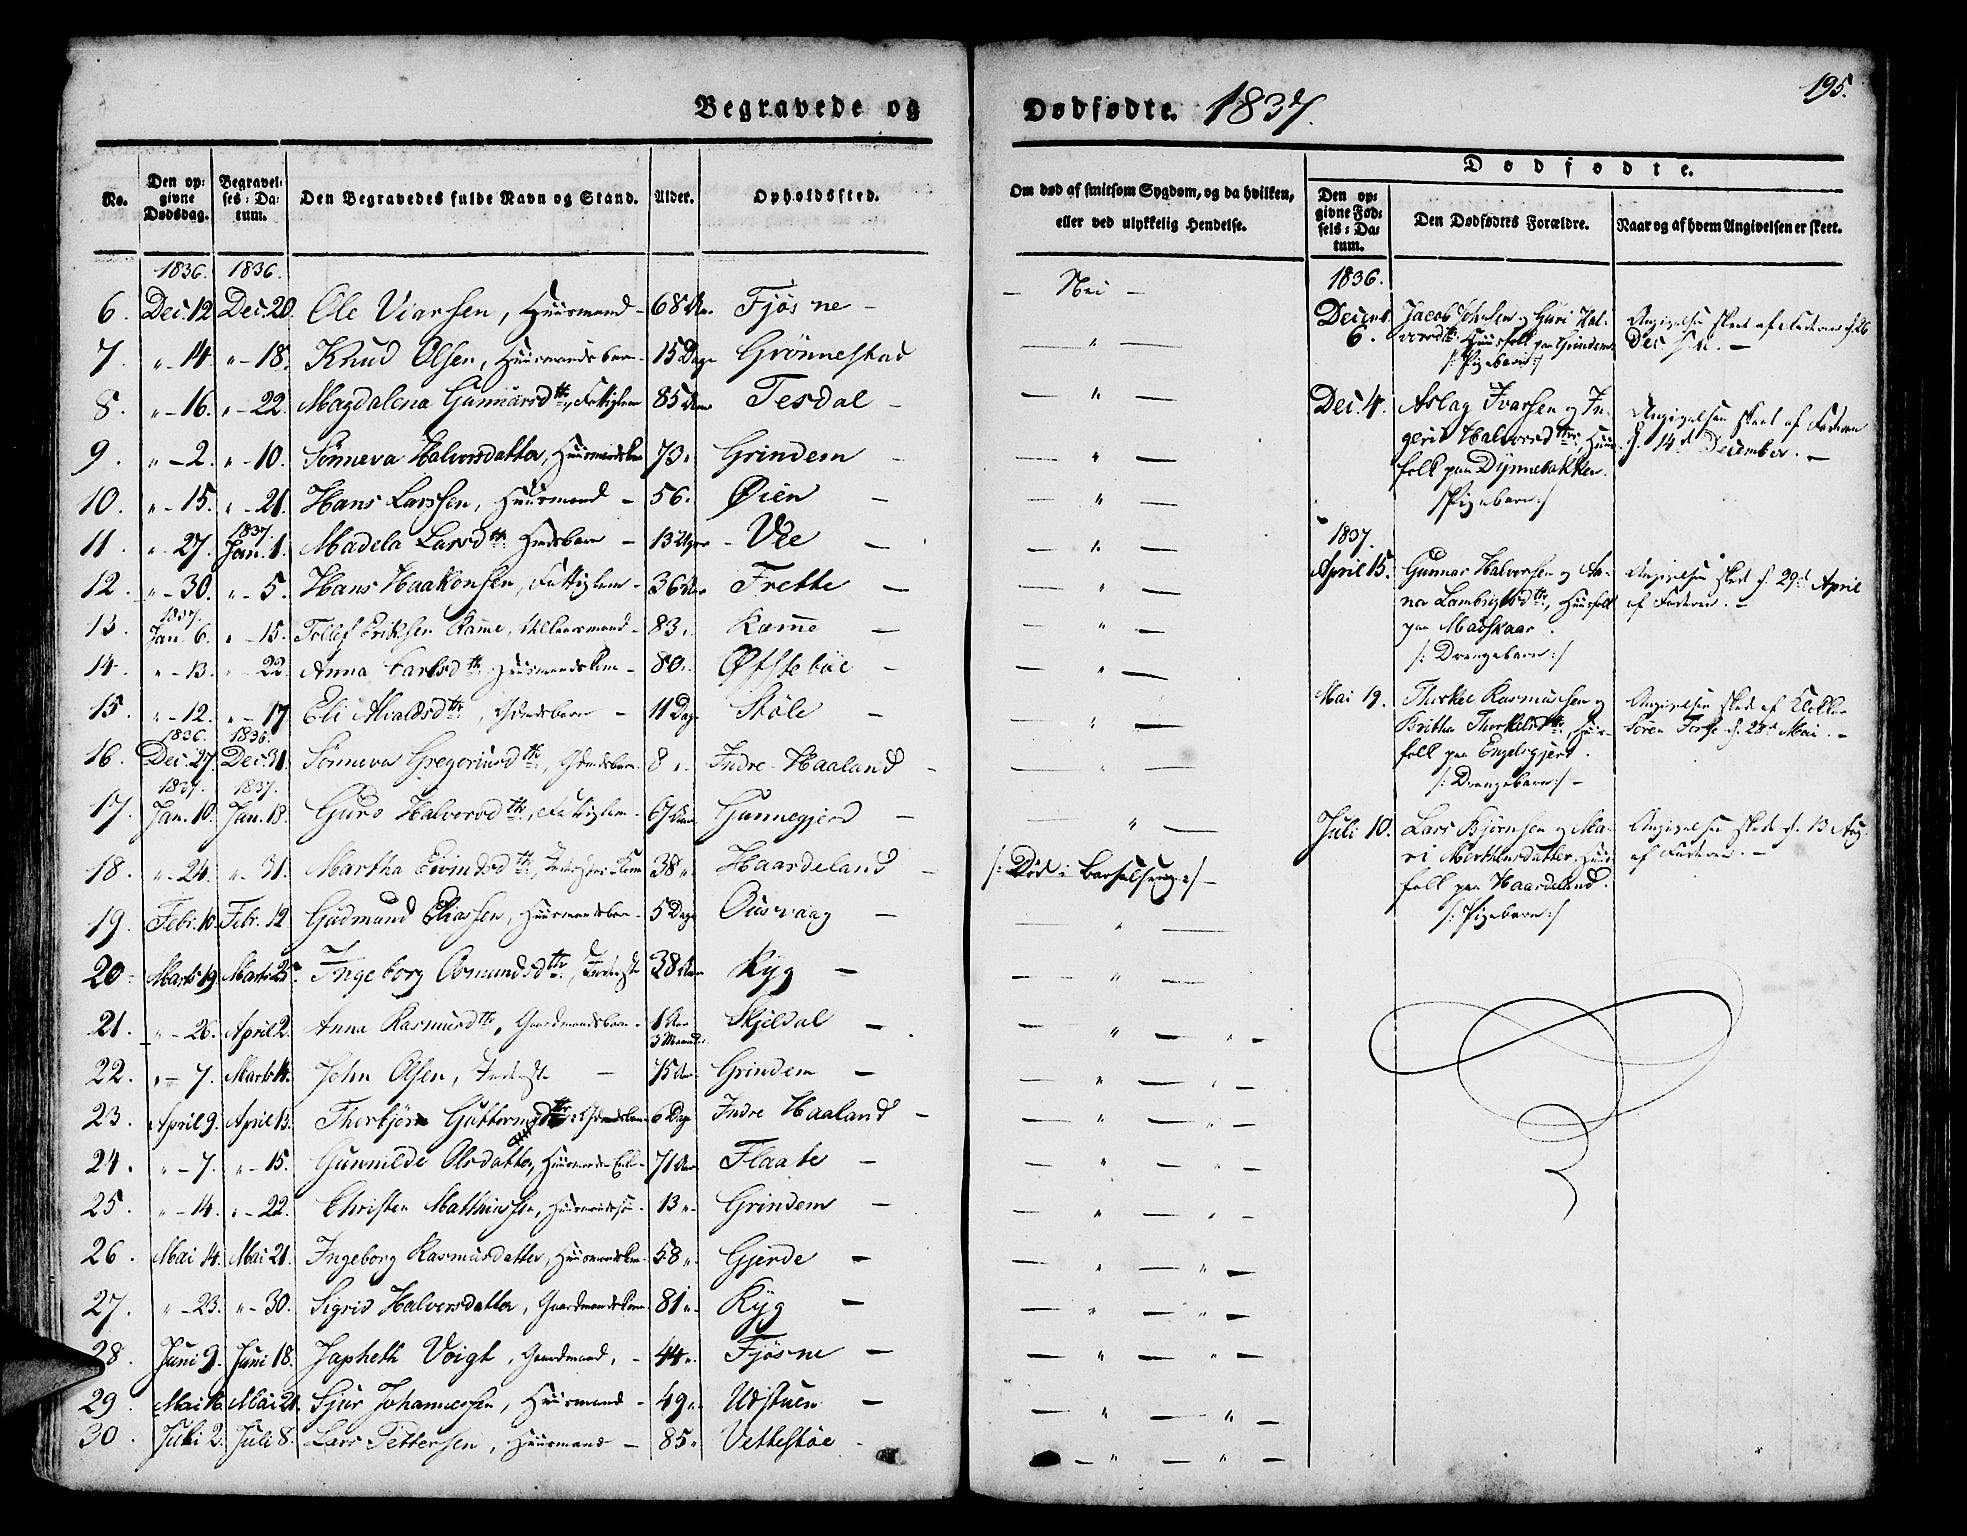 195.
Begravede og Dødfødte. 1837.
No. Den opgivne Dødsdag. Begravelses-Datum. Den Begravedes fulde Navn og Stand. Alder. Opholdssted.
Om død af smitsom Sygdom, og da hvilken, eller ved ulykkelig Hendelse.
Dødfødte.
Den opgivne Fødsels-Datum. Den Dødfødtes Forældre. Naar og af hvem Angivelsen er skeet.
1836. 1836.
6. Dec. 12 Dec. 20. Ole Viarsen, Huusmand - 68 Fjøsne - — Nei —
7. " - 14. " - 18. Knud Olsen, Huusmandsbarn - 15 Dage Grønnestad — " —
8. " - 16. " - 22. Magdalena Gunnarsdtr, Fattiglem 85 Aar Tesdal - — " —
9. " - 2. " - 10. Sønneva Halvorsdatter, 73 " Grindem - — " —
10. " - 15. " - 21. Hans Larssen, Huusmand - 56. Øien - — " —
1837.
11. " - 27. Jan. 1. Madela Larsdtr 13 Uger - Vee - — " —
12. " - 30. " - 5. Hans Haakonsen, Fattiglem - 36 Aar Frette - — " —
1837.
13. Jan. 6. " - 15. Tollef Eriksen Ramme, - 83. Ramme - — " —
14. " - 13. " - 22. Anna Carlsdtr, Huusmandskone - 80. Øfstebøe - — " —
15. " - 12. " - 17 Eli Alvaldsdtr, - 11 Dage Støle - — " —
1836. 1836.
16. Dec. 27. Dec. 31. Sønneva Gregeriusdtr, 8 ". Indre-Haaland - — " —
1837. 1837.
17. Jan. 10. Jan. 18. Guro Halvorsdtr, Fattiglem - 67 Aar Gunnegjerd - — " —
18. " - 24. " - 31. Martha Eivindsdtr, 38 " Haardeland - /: Død i Barselseng :/ -
19. Febr. 10. Febr. 12 Gudmund Eliassen, Huusmandsbarn - 5 Dage Ousvaag - — " —
20 - Marts 19 Marts 25. Ingeborg Osmundsdtr, Inderste 38 Aar Ryg - — " —
21. " - 26. April 2. Anna Rasmusdtr, Gaardmandsbarn - 1 Aar 3 Maaned. Skjeldal - — " — " -
22. " - 7. Marts 14. John Olsen, Inderste - 75 Aar Grindem - — " — " -
23. April 9. April 13. Thorbjør Guttormsdtr: 6 Dage Indre Haaland - — " — " -
24. " - 7. " - 15. Gunnilde Olsdatter, Huusmands Enke - 71 Aar Flaate - — " — " -
25. " - 14. " - 22. Christen Mathiassen, Huusmandssøn - 13 " - Grindem - — " — " -
26. Mai 14. Mai 21. Ingeborg Rasmusdatter, Huusmandskone - 58 ". Gjerde - — " — " -
27. " - 23. " - 30. Sigrid Halvorsdatter, Gaardmandskone. 81 ". Ryg - — " — " -
28. Juni 9. Juni 18. Japheth Voigt, Gaardmand, - 44 ". Fjøsne - — " — " -
29. Mai 16. Mai 21. Sjur Johannessen, Huusmand - 49 " Udstuen - — " — " -
30. Juli 2. Juli 8. Lars Pettersen, Huusmand - 85 " Vettestøe - — " — " -
1836.
Decemb. 6. Jacob Johnsen og Guri Halvorsdtr. Huusfolk paa Grindem /: Pigebarn :/
Angivelsen skeet af Faderen d. 26 Dec
Dec. 4. Aslag Ivarsen og Ingerid Halvorsdtr, Huusfolk paa Dynnebakken. /: Pigebarn :/
Angivelsen skeet af Faderen d. 14d December. -
1837.
April 15. Gunnar Halvorsen og Anna Lambrigtsdtr, Huusfolk paa Madskaar. /: Drengebarn :/
Angivelsen skeet d. 29d April af Faderen. -
Mai 19. Thorkel Rasmussen og Britha Thorkelsdtr, Huusfolk paa Engelsgjerd. /: Drengebarn :/ -
Angivelsen skeet af Klokker Søren d. 28d Mai. -
Juli 10. Lars Bjørnsen og Mari Mortensdatter, Huusfolk paa Haardeland. /: Pigebarn :/
Angivelsen skeet d. 13 Aug. af Faderen. -